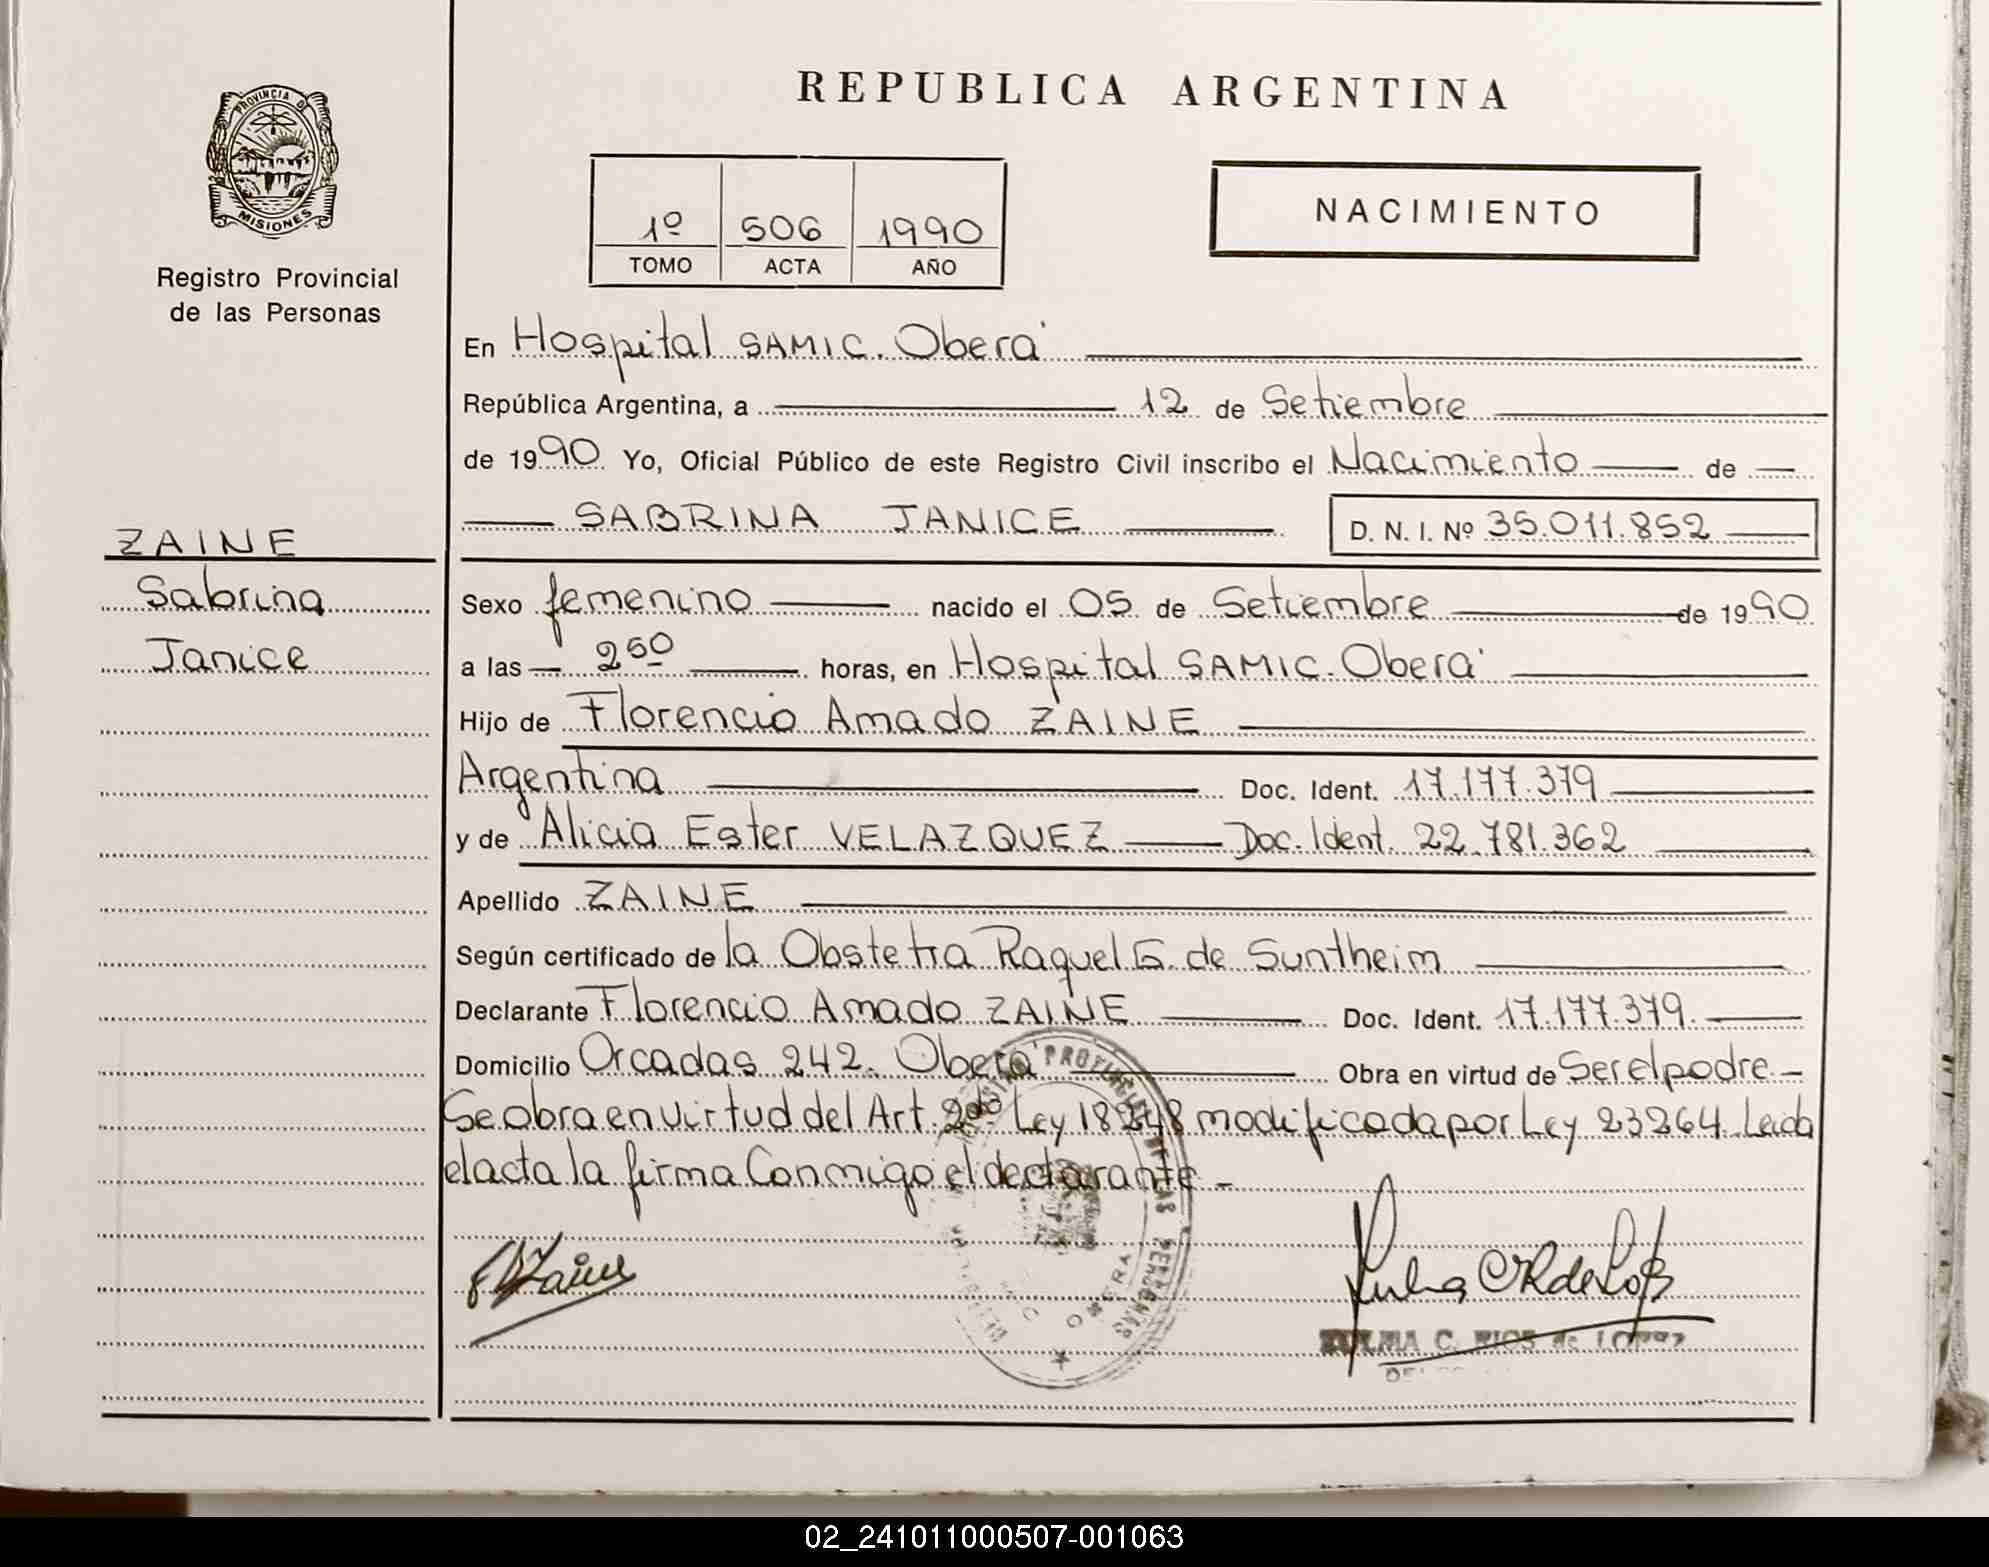 PROVINCIA DE
MISIONES
Registro Provincial
de las Personas
ZAINE
Sabrina
Janice
REPUBLICA ARGENTINA
1º 506 1990
TOMO ACTA AÑO
NACIMIENTO
En Hospital SAMIC. Oberá
República Argentina, a 12 de Setiembre
de 1990 Yo, Oficial Público de este Registro Civil inscribo el Nacimiento de
SABRINA JANICE D. N. I. Nº 35.011.852
Sexo femenino nacido el 05 de Setiembre de 1990
a las 2⁵⁰ horas, en Hospital SAMIC. Oberá
Hijo de Florencio Amado ZAINE
Argentina Doc. Ident. 17.177.379
y de Alicia Ester VELAZQUEZ Doc. Ident. 22.781.362
Apellido ZAINE
Según certificado de la Obstetra Raquel G. de Suntheim
Declarante Florencio Amado ZAINE Doc. Ident. 17.177.379.
Domicilio Orcadas 242. Oberá Obra en virtud de Ser el padre.-
Se obra en virtud del Art. 2do Ley 18248 modificada por Ley 23264. Leida
el acta la firma Conmigo el declarante.-
Zaine
ZULMA C. RIOS de LOPEZ
02_241011000507-001063